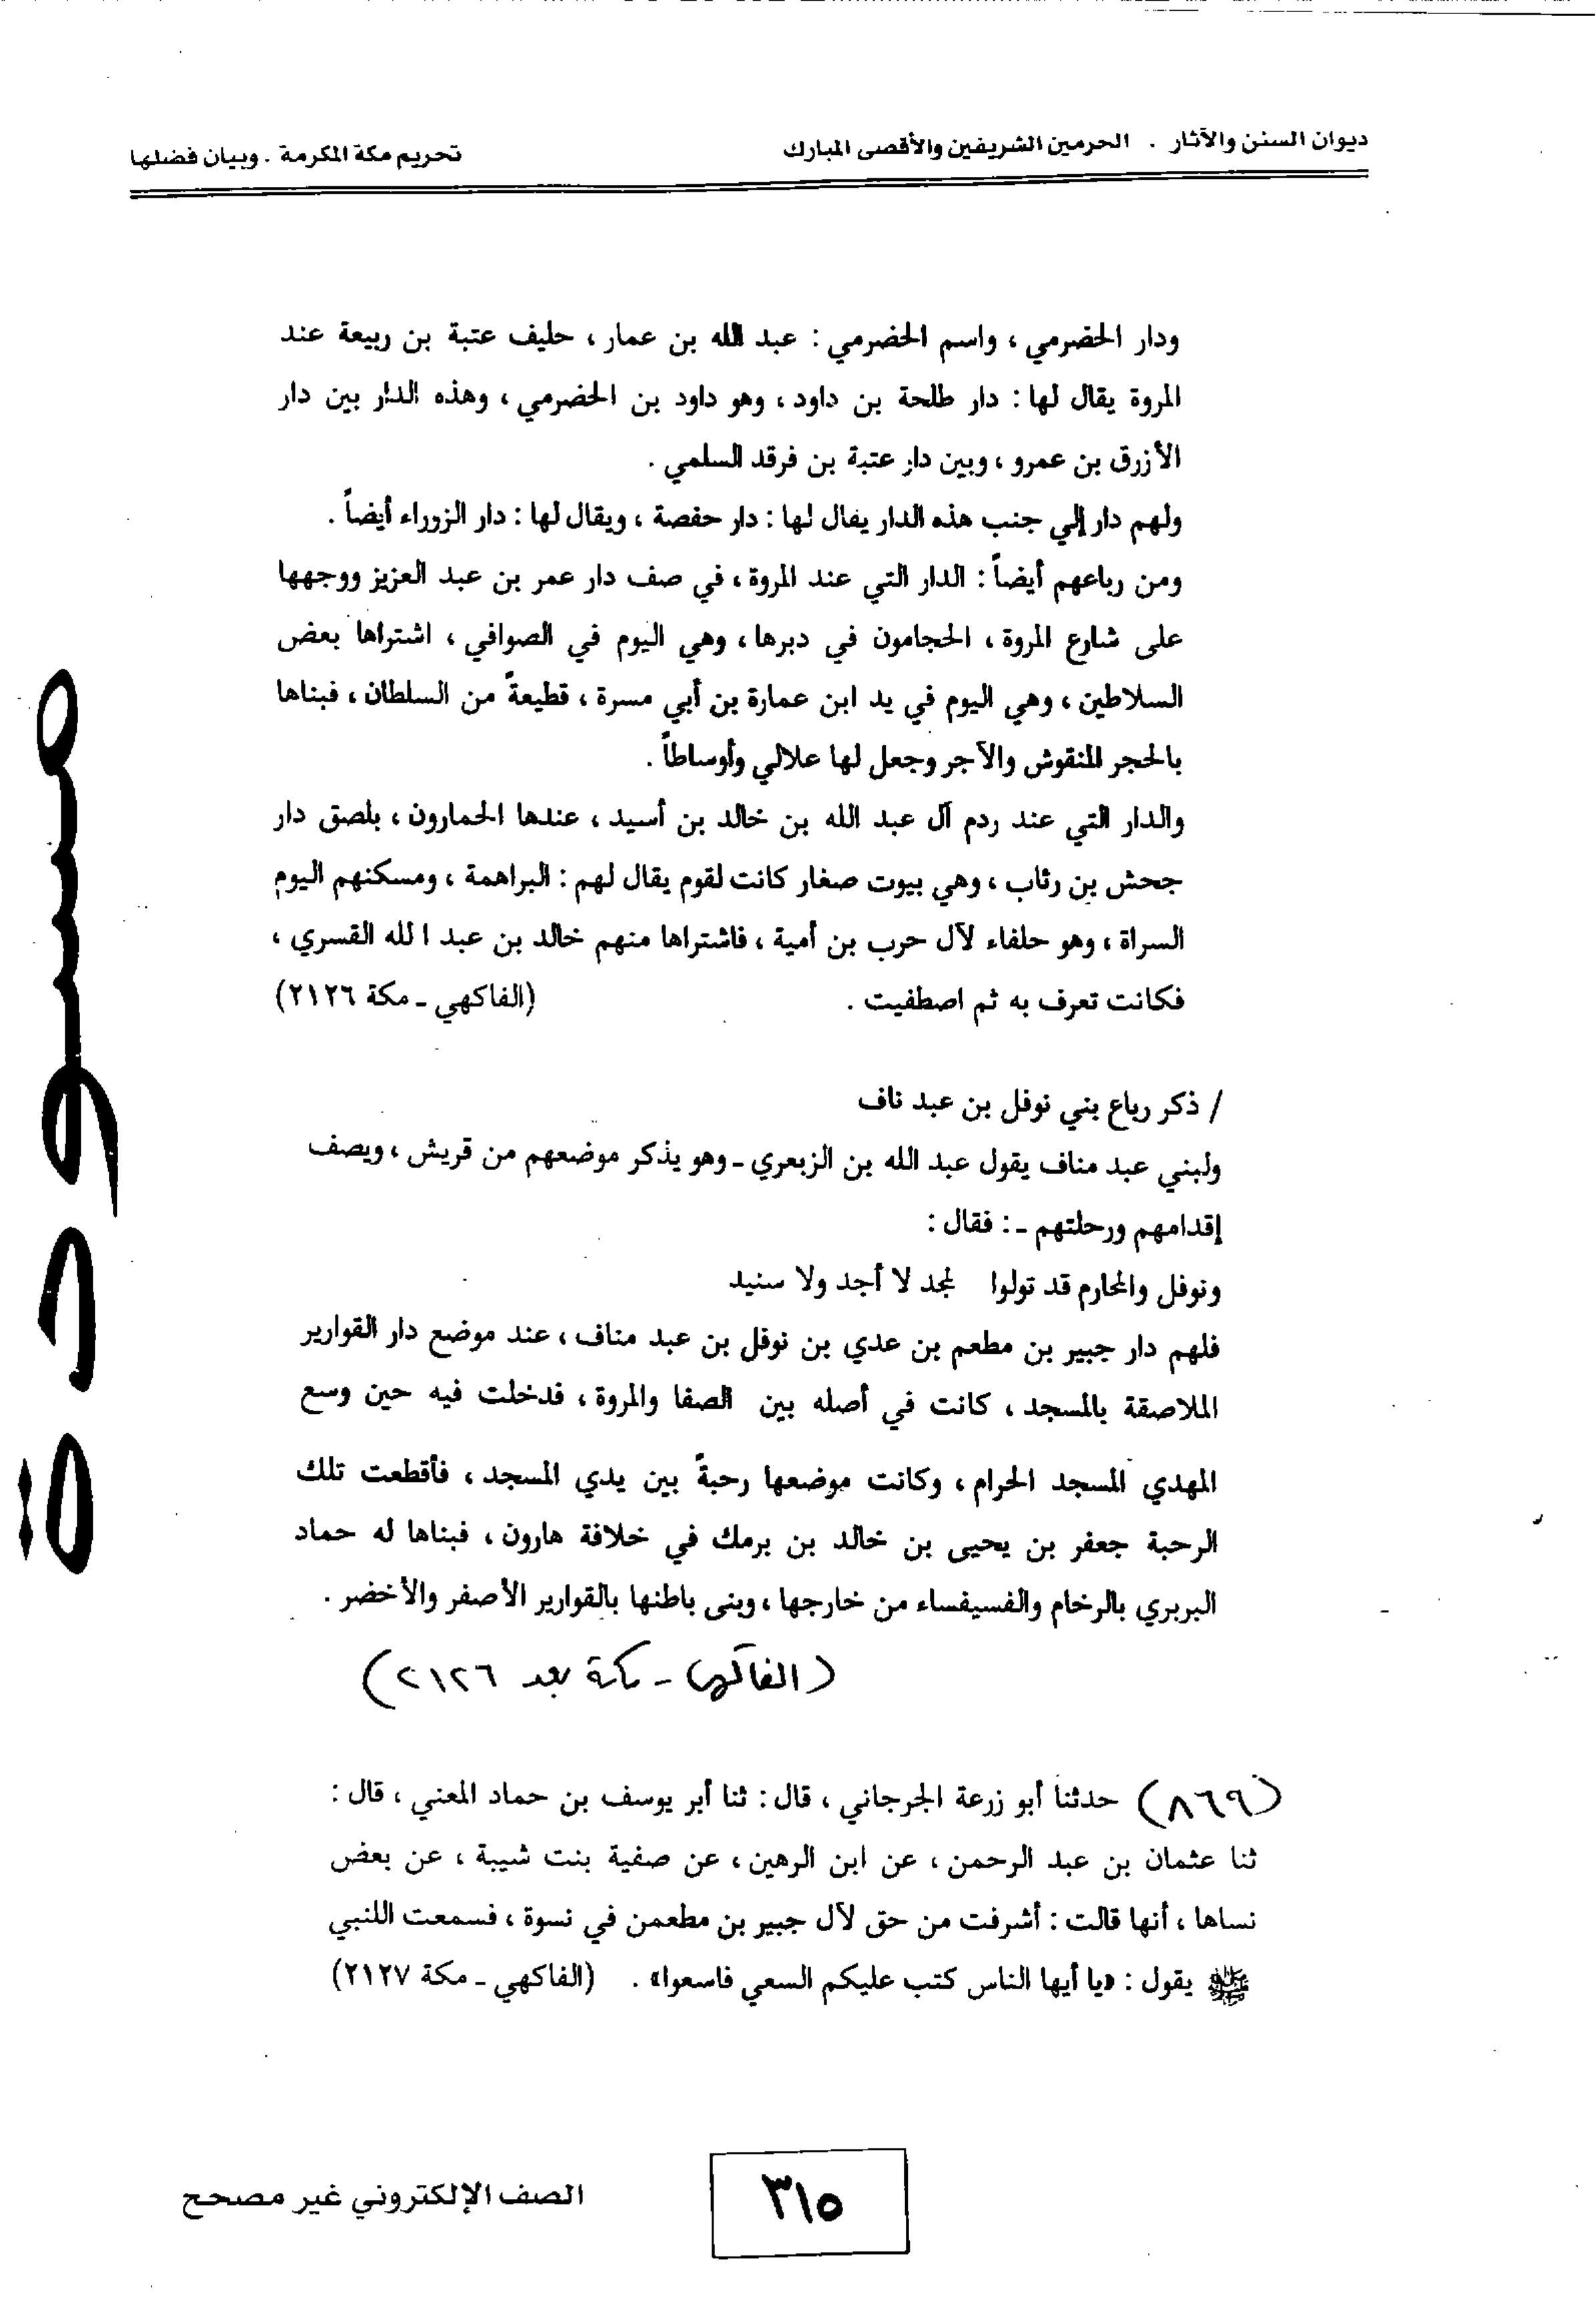 ديوان السنن والآثار . الحرمين الشريفين والأقصى المبارك
تحريم مكة المكرمة . وبيان فضلها
ودار الخضرمي ، واسم الخضرمي : عبد الله بن عمار ، حليف عتبة بن ربيعة عند
المروة يقال لها : دار طلحة بن داود ، وهو داود بن الخضرمي ، وهذه الدار بين دار
الأزرق بن عمرو ، وبين دار عتبة بن فرقد السلمي .
ولهم دار إلي جنب هذه الدار يقال لها : دار حفصة ، ويقال لها : دار الزوراء أيضاً .
ومن رباعهم أيضاً : الدار التي عند المروة ، في صف دار عمر بن عبد العزيز ووجهها
على شارع المروة ، الحجامون في دبرها ، وهي اليوم في الصوافي ، اشتراها بعض
السلاطين ، وهي اليوم في يد ابن عمارة بن أبي مسرة ، قطيعةً من السلطان ، فبناها
بالحجر المنقوش والآجر وجعل لها علالي وأوساطاً .
والدار التي عند ردم آل عبد الله بن خالد بن أسيد ، عندها الحمارون ، بلصق دار
جحش بن رئاب ، وهي بيوت صغار كانت لقوم يقال لهم : البراهمة ، ومسكنهم اليوم
السراة ، وهو حلفاء لآل حرب بن أمية ، فاشتراها منهم خالد بن عبد الله القسري ،
فكانت تعرف به ثم اصطفيت . (الفاكهي ـ مكة ٢١٢٦)
/ ذكر رباع بني نوفل بن عبد ناف
ولبني عبد مناف يقول عبد الله بن الزبعري ـ وهو يذكر موضعهم من قريش ، ويصف
إقدامهم ورحلتهم ـ : فقال :
ونوفل والمحارم قد تولوا لمجد لا أجد ولا سنيد
فلهم دار جبير بن مطعم بن عدي بن نوفل بن عبد مناف ، عند موضع دار القوارير
الملاصقة بالمسجد ، كانت في أصله بين الصفا والمروة ، فدخلت فيه حين وسع
المهدي المسجد الحرام ، وكانت موضعها رحبةً بين يدي المسجد ، فأقطعت تلك
الرحبة جعفر بن يحيى بن خالد بن برمك في خلافة هارون ، فبناها له حماد
البربري بالرخام والفسيفساء من خارجها ، وبنى باطنها بالقوارير الأصفر والأخضر .
(الفاكهي ـ مكة بعد ٢١٢٦)
(٨٦٩) حدثنا أبو زرعة الجرجاني ، قال : ثنا أبر يوسف بن حماد المعني ، قال :
ثنا عثمان بن عبد الرحمن ، عن ابن الرهين ، عن صفية بنت شيبة ، عن بعض
نساها ، أنها قالت : أشرفت من حق لآل جبير بن مطعمن في نسوة ، فسمعت اللنبي
ﷺ يقول : «يا أيها الناس كتب عليكم السعي فاسعوا» . (الفاكهي ـ مكة ٢١٢٧)
٣١٥
الصف الإلكتروني غير مصحح
مسودة